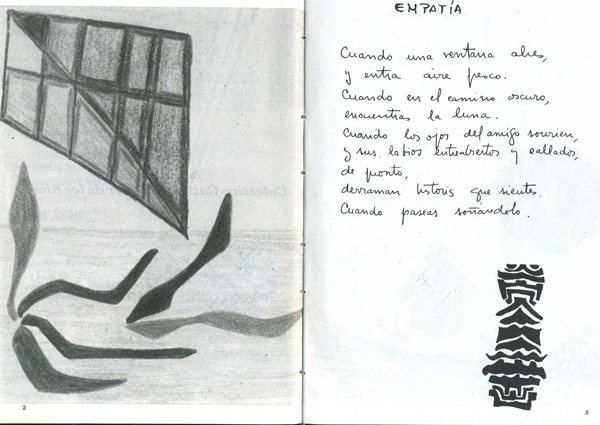 EMPATÍA
Cuando una ventana abres,
y entra aire fresco.
Cuando en el camino oscuro,
encuentras la luna.
Cuando los ojos del amigo sonrien,
y sus labios entreabiertos y callados,
de pronto,
derraman historias que sientes.
Cuando paseas soñándolo.
2
3